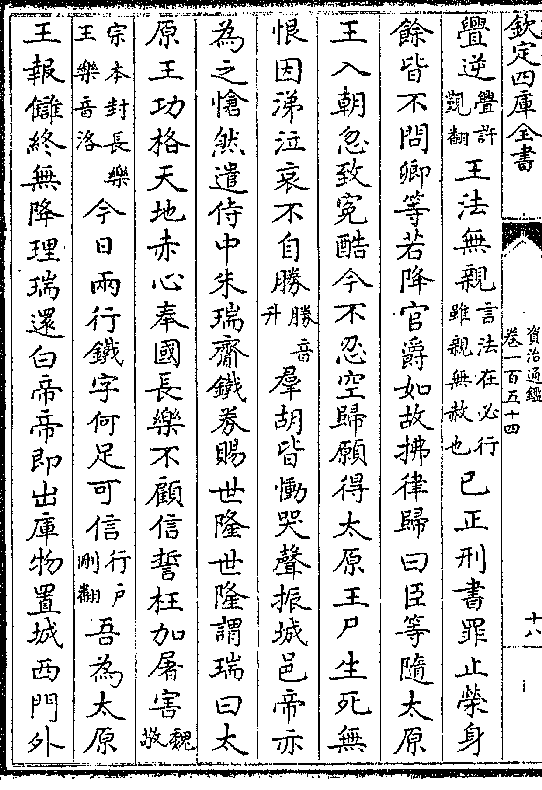 欽定四庫全書
資治通鑑
卷一百五十四
十八
釁逆釁許覲翻王法無親言法在必行雖親無赦也已正刑書罪止榮身
餘皆不問卿等若降官爵如故拂律歸曰臣等隨太原
王入朝忽致寃酷今不忍空歸願得太原王尸生死無
恨因涕泣哀不自勝勝音升羣胡皆慟哭聲振城邑帝亦
為之愴然遣侍中朱瑞齎鐵券賜世隆世隆謂瑞曰太
原王功格天地赤心奉國長樂不顧信誓枉加屠害魏敬
宗本封長樂王樂音洛今日兩行鐵字何足可信行户剛翻吾為太原
王報讎終無降理瑞還白帝帝即出庫物置城西門外